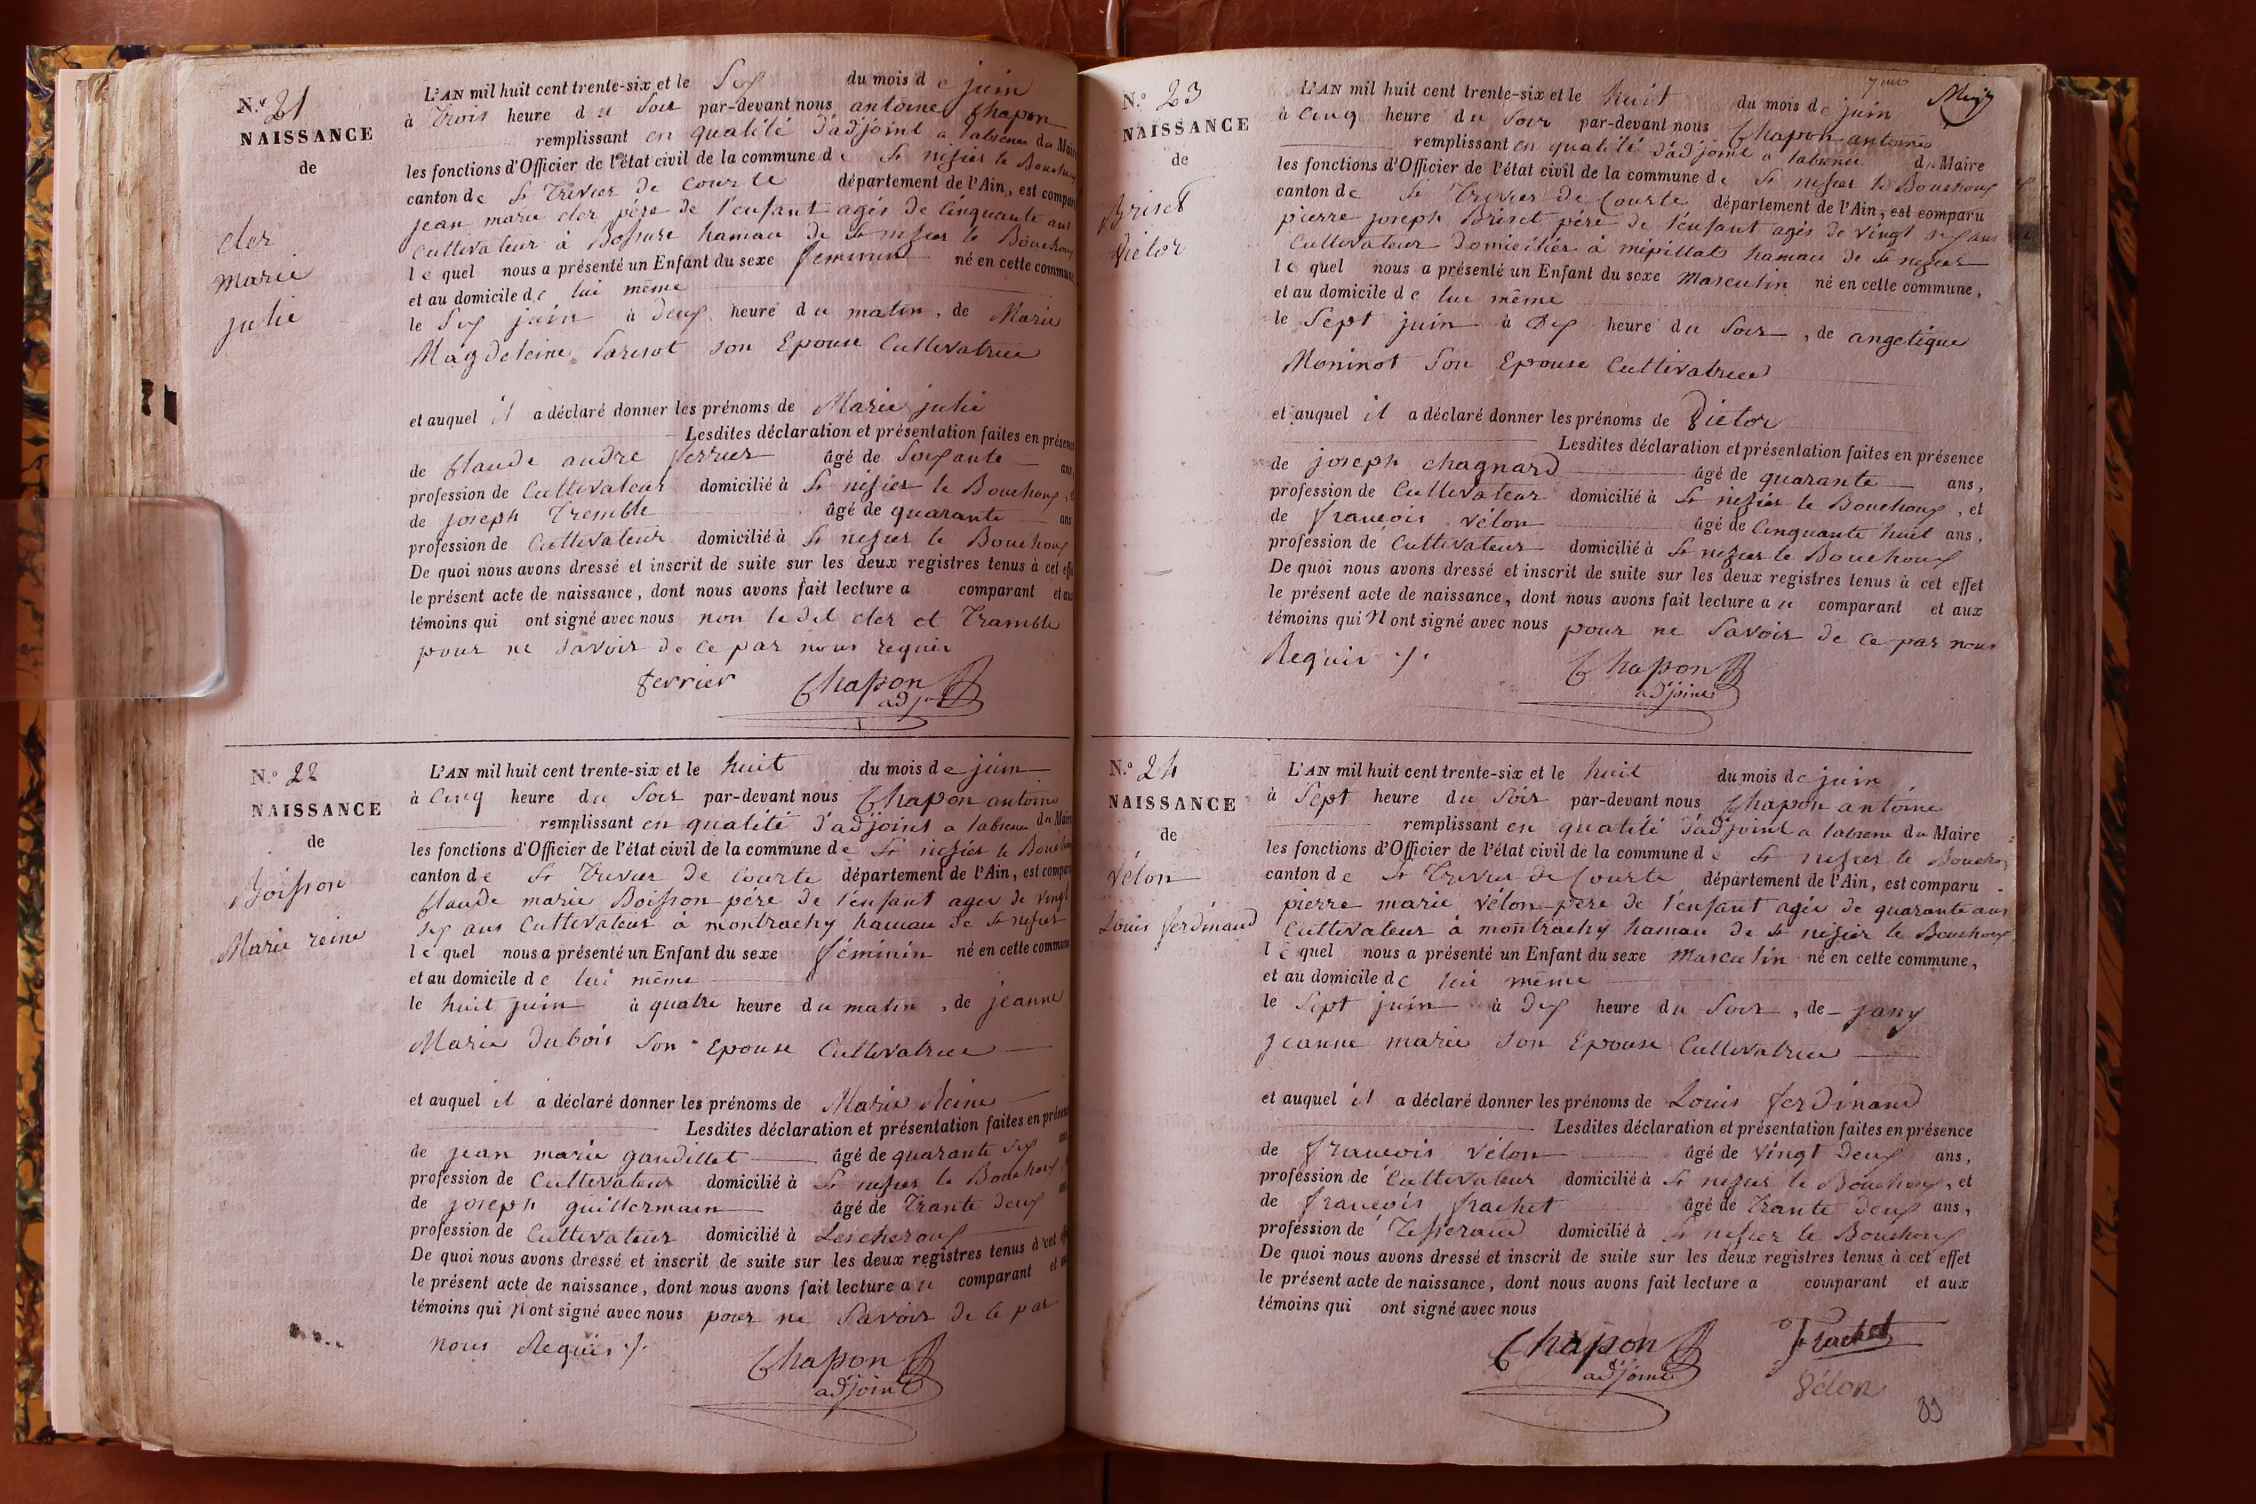 N.º 21
NAISSANCE
de
cler
marie
julie
L'AN mil huit cent trente-six et le Six du mois de juin
à Trois heure du Soir par-devant nous antoine Chapon
remplissant en qualité d'adjoint a labsence du Maire
les fonctions d'Officier de l'état civil de la commune de St nizier le Bouchoux
canton de St Trivier de Courte département de l'Ain, est comparu
jean marie cler père de l'enfant agés de Cinquante ans
Cultivateur à hamau de St nizier le Bouchoux
lequel nous a présenté un Enfant du sexe feminin né en cette commune
et au domicile de lui même
le Six juin à deux heure du matin, de Marie
Magdeleine Parisot son Epouse Cultivatrice
et auquel il a déclaré donner les prénoms de Marie julie
Lesdites déclaration et présentation faites en présence
de Claude andré ferrier âgé de Soixante ans
profession de Cultivateur domicilié à St nizier le Bouchoux,
de joseph Tremble âgé de quarante ans
profession de Cultivateur domicilié à St nizier le Bouchoux
De quoi nous avons dressé et inscrit de suite sur les deux registres tenus à cet effet
le présent acte de naissance, dont nous avons fait lecture a comparant et aux
témoins qui ont signé avec nous non le dit cler et Tramble
pour ne savoir de ce par nous requir
ferrier Chapon
adjt
N.º 22
NAISSANCE
de
Boisson
Marie reine
L'AN mil huit cent trente-six et le huit du mois de juin
à Cinq heure du Soir par-devant nous Chapon antoine
remplissant en qualité d'adjoint a labsence du Maire
les fonctions d'Officier de l'état civil de la commune de St nizier le Bouchoux
canton de St Trivier de Courte département de l'Ain, est comparu
Claude marie Boisson père de l'enfant agée de vingt
six ans Cultivateur à montrachy hamau de St nizier
lequel nous a présenté un Enfant du sexe féminin né en cette commune
et au domicile de lui même
le huit juin à quatre heure du matin, de jeanne
Marie dubois Son Epouse Cultivatrice
et auquel il a déclaré donner les prénoms de Marie Reine
Lesdites déclaration et présentation faites en présence
de jean marie gaudillet âgé de quarante six ans
profession de Cultivateur domicilié à St nizier le Bouchoux
de joseph guillermain âgé de Trante deux ans
profession de Cultivateur domicilié à Lescheroux
De quoi nous avons dressé et inscrit de suite sur les deux registres tenus à cet effet
le présent acte de naissance, dont nous avons fait lecture au comparant et aux
témoins qui N ont signé avec nous pour ne Savoir de ce par
nous Requis ./.
Chapon
adjoint
7me
N.º 23
NAISSANCE
de
Briset
Victor
L'AN mil huit cent trente-six et le huit du mois de juin
à Cinq heure du Soir par-devant nous Chapon antoine
remplissant en qualité d'adjoint a labsence du Maire
les fonctions d'Officier de l'état civil de la commune de St nizier le Bouchoux
canton de St Trivier de Courte département de l'Ain, est comparu
pierre joseph Briset père de l'enfant agés de vingt six ans
Cultivateur domiciliés à mépillat hamau de St nizier
lequel nous a présenté un Enfant du sexe Masculin né en cette commune,
et au domicile de lui même
le Sept juin à Dix heure du Soir, de angelique
Moninot Son Epouse Cultivatrice
et auquel il a déclaré donner les prénoms de Victor
Lesdites déclaration et présentation faites en présence
de joseph chagnard âgé de quarante ans,
profession de Cultivateur domicilié à St nizier le Bouchoux, et
de françois vélon âgé de Cinquante huit ans,
profession de Cultivateur domicilié à St nizier le Bouchoux
De quoi nous avons dressé et inscrit de suite sur les deux registres tenus à cet effet
le présent acte de naissance, dont nous avons fait lecture au comparant et aux
témoins qui N ont signé avec nous pour ne Savoir de ce par nous
Requir ./.
Chapon
adjoint
N.º 24
NAISSANCE
de
vélon
Louis ferdinand
L'AN mil huit cent trente-six et le huit du mois de juin
à Sept heure du Soir par-devant nous Chapon antoine
remplissant en qualité d'adjoint a labsence du Maire
les fonctions d'Officier de l'état civil de la commune de St nizier le Bouchoux
canton de St Trivier de Courte département de l'Ain, est comparu
pierre marie vélon père de l'enfant agée de quarante ans
Cultivateur à montrachy hamau de St nizier le Bouchoux
lequel nous a présenté un Enfant du sexe Masculin né en cette commune,
et au domicile de lui même
le Sept juin à dix heure du Soir, de jany
jeanne marie son Epouse Cultivatrice
et auquel il a déclaré donner les prénoms de Louis ferdinand
Lesdites déclaration et présentation faites en présence
de françois vélon âgé de vingt deux ans,
profession de Cultivateur domicilié à St nizier le Bouchoux, et
de françois frachet âgé de Trante deux ans,
profession de Tisserand domicilié à St nizier le Bouchoux
De quoi nous avons dressé et inscrit de suite sur les deux registres tenus à cet effet
le présent acte de naissance, dont nous avons fait lecture a comparant et aux
témoins qui ont signé avec nous
Chapon frachet
adjoint
Vélon